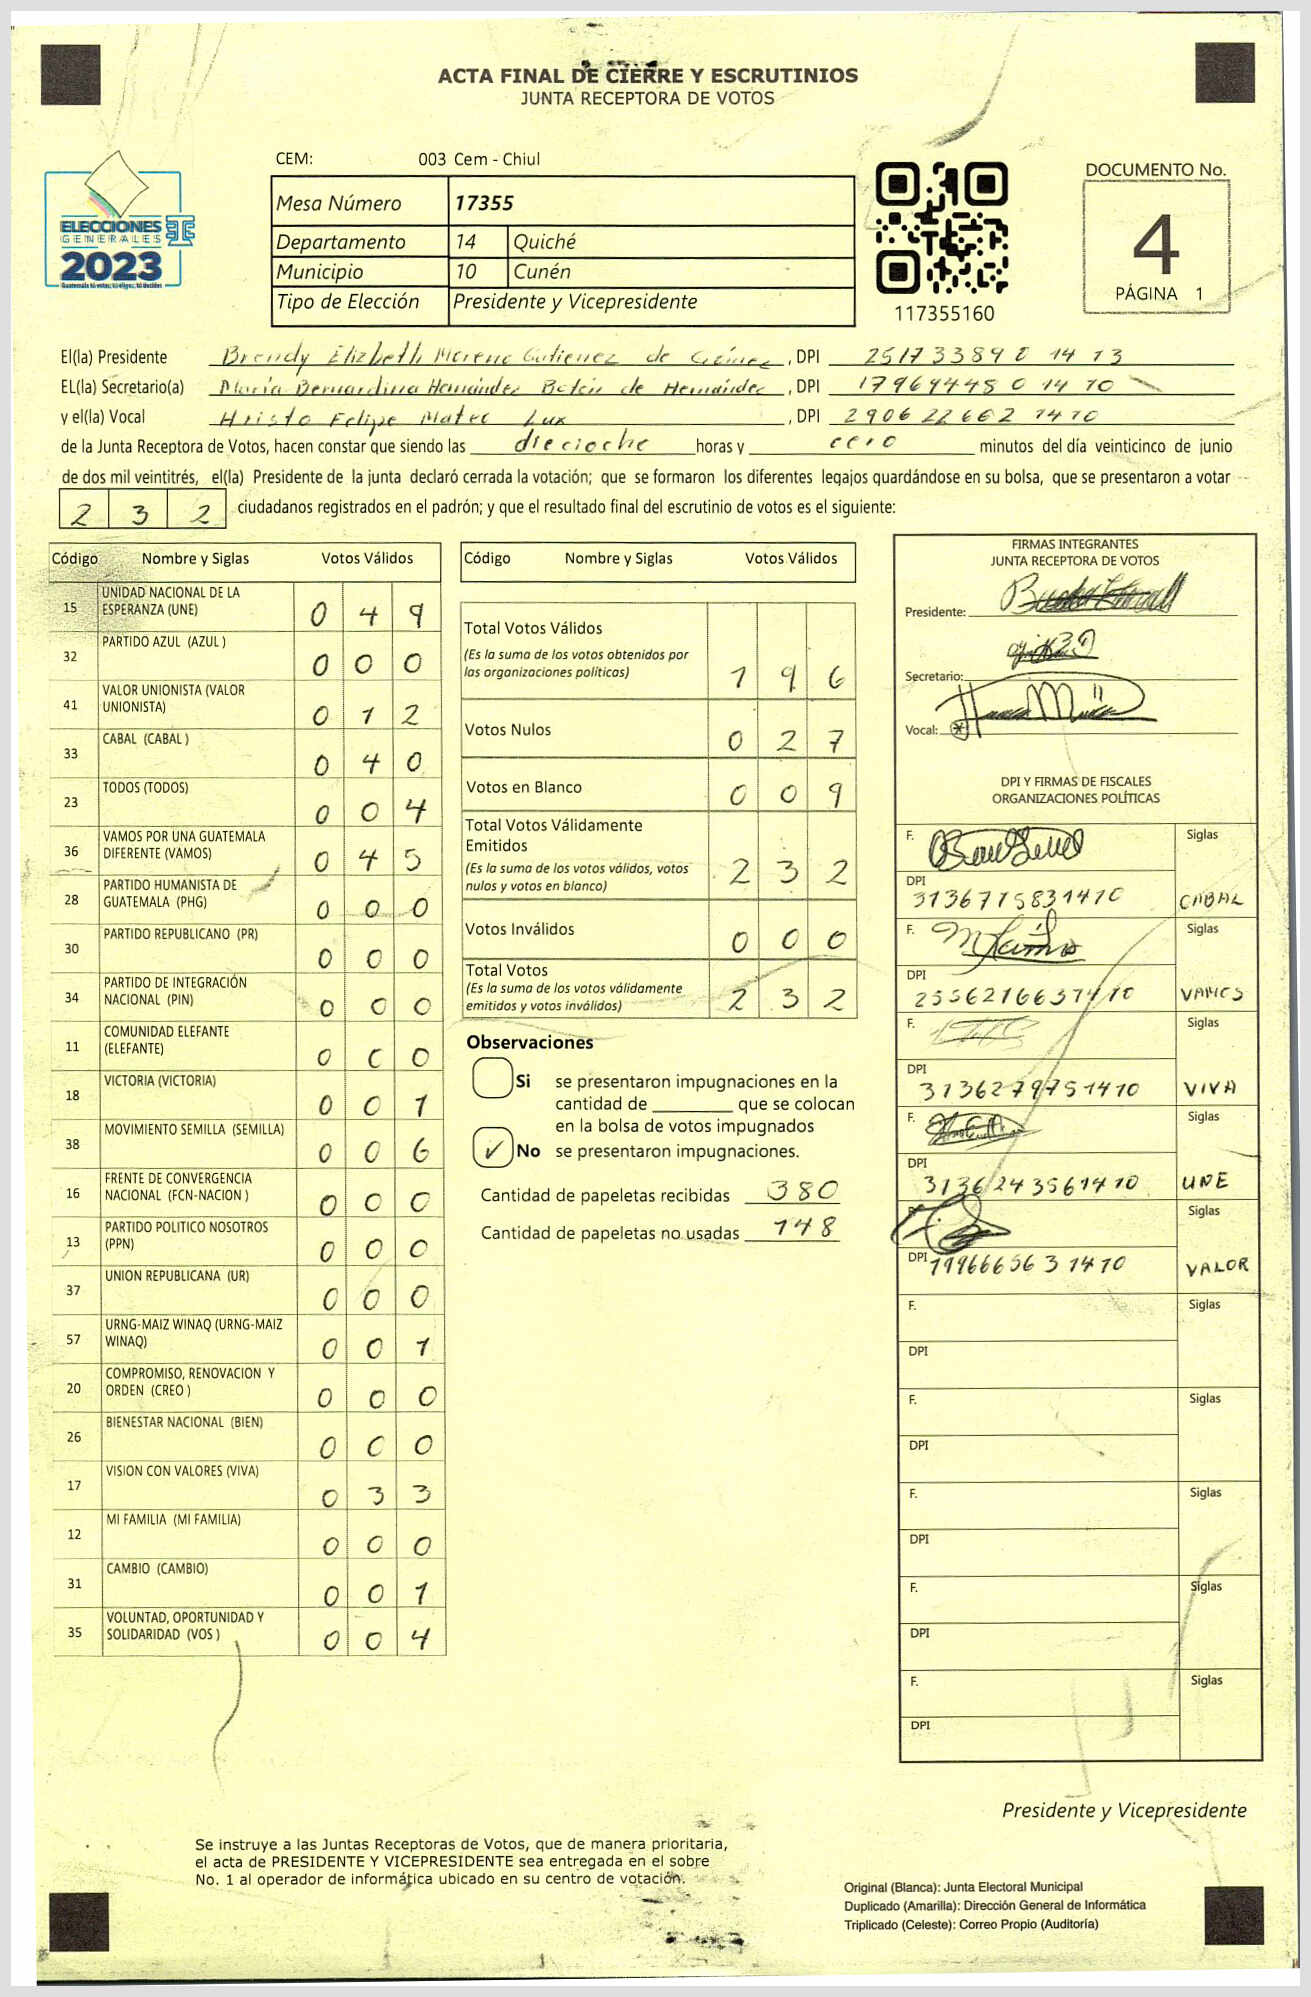 ACTA FINAL DE CIERRE Y ESCRUTINIOS
JUNTA RECEPTORA DE VOTOS
CEM: 003 Cem - Chiul
ELECCIONES
GENERALES
2023
Guatemala tú votas, tú eliges, tú decides
Mesa Número 17355
Departamento 14 Quiché
Municipio 10 Cunén
Tipo de Elección Presidente y Vicepresidente
117355160
DOCUMENTO No.
4
PÁGINA 1
El(la) Presidente Brendy Elizbeth Moreno Gutierrez de Gómez, DPI 2517 33890 14 13
EL(la) Secretario(a) María Bernardina Hernández Botón de Hernández, DPI 17969448 0 14 10
y el(la) Vocal Hristo Felipe Mateo Lux, DPI 2906 22662 1410
de la Junta Receptora de Votos, hacen constar que siendo las dieciocho horas y cero minutos del día veinticinco de junio
de dos mil veintitrés, el(la) Presidente de la junta declaró cerrada la votación; que se formaron los diferentes legajos guardándose en su bolsa, que se presentaron a votar
2 3 2 ciudadanos registrados en el padrón; y que el resultado final del escrutinio de votos es el siguiente:
Código Nombre y Siglas Votos Válidos
15 UNIDAD NACIONAL DE LA ESPERANZA (UNE) 0 4 9
32 PARTIDO AZUL (AZUL ) 0 0 0
41 VALOR UNIONISTA (VALOR UNIONISTA) 0 1 2
33 CABAL (CABAL ) 0 4 0
23 TODOS (TODOS) 0 0 4
36 VAMOS POR UNA GUATEMALA DIFERENTE (VAMOS) 0 4 5
28 PARTIDO HUMANISTA DE GUATEMALA (PHG) 0 0 0
30 PARTIDO REPUBLICANO (PR) 0 0 0
34 PARTIDO DE INTEGRACIÓN NACIONAL (PIN) 0 0 0
11 COMUNIDAD ELEFANTE (ELEFANTE) 0 0 0
18 VICTORIA (VICTORIA) 0 0 1
38 MOVIMIENTO SEMILLA (SEMILLA) 0 0 6
16 FRENTE DE CONVERGENCIA NACIONAL (FCN-NACION ) 0 0 0
13 PARTIDO POLITICO NOSOTROS (PPN) 0 0 0
37 UNION REPUBLICANA (UR) 0 0 0
57 URNG-MAIZ WINAQ (URNG-MAIZ WINAQ) 0 0 1
20 COMPROMISO, RENOVACION Y ORDEN (CREO ) 0 0 0
26 BIENESTAR NACIONAL (BIEN) 0 0 0
17 VISION CON VALORES (VIVA) 0 3 3
12 MI FAMILIA (MI FAMILIA) 0 0 0
31 CAMBIO (CAMBIO) 0 0 1
35 VOLUNTAD, OPORTUNIDAD Y SOLIDARIDAD (VOS ) 0 0 4
Código Nombre y Siglas Votos Válidos
Total Votos Válidos
(Es la suma de los votos obtenidos por
las organizaciones políticas) 1 9 6
Votos Nulos 0 2 7
Votos en Blanco 0 0 9
Total Votos Válidamente
Emitidos
(Es la suma de los votos válidos, votos
nulos y votos en blanco) 2 3 2
Votos Inválidos 0 0 0
Total Votos
(Es la suma de los votos válidamente
emitidos y votos inválidos) 2 3 2
Observaciones
Si se presentaron impugnaciones en la
cantidad de ________ que se colocan
en la bolsa de votos impugnados
✓ No se presentaron impugnaciones.
Cantidad de papeletas recibidas 380
Cantidad de papeletas no usadas 148
FIRMAS INTEGRANTES
JUNTA RECEPTORA DE VOTOS
Presidente:
Secretario:
Vocal:
DPI Y FIRMAS DE FISCALES
ORGANIZACIONES POLÍTICAS
F. Siglas
DPI 3136775831410 CABAL
F. Siglas
DPI 2556216637410 VAMOS
F. Siglas
DPI 3136279751410 VIVA
F. Siglas
DPI 3136243561410 UNE
F. Siglas
DPI 1996665631410 VALOR
F. Siglas
DPI
F. Siglas
DPI
F. Siglas
DPI
F. Siglas
DPI
F. Siglas
DPI
Presidente y Vicepresidente
Se instruye a las Juntas Receptoras de Votos, que de manera prioritaria,
el acta de PRESIDENTE Y VICEPRESIDENTE sea entregada en el sobre
No. 1 al operador de informática ubicado en su centro de votación.
Original (Blanca): Junta Electoral Municipal
Duplicado (Amarilla): Dirección General de Informática
Triplicado (Celeste): Correo Propio (Auditoría)